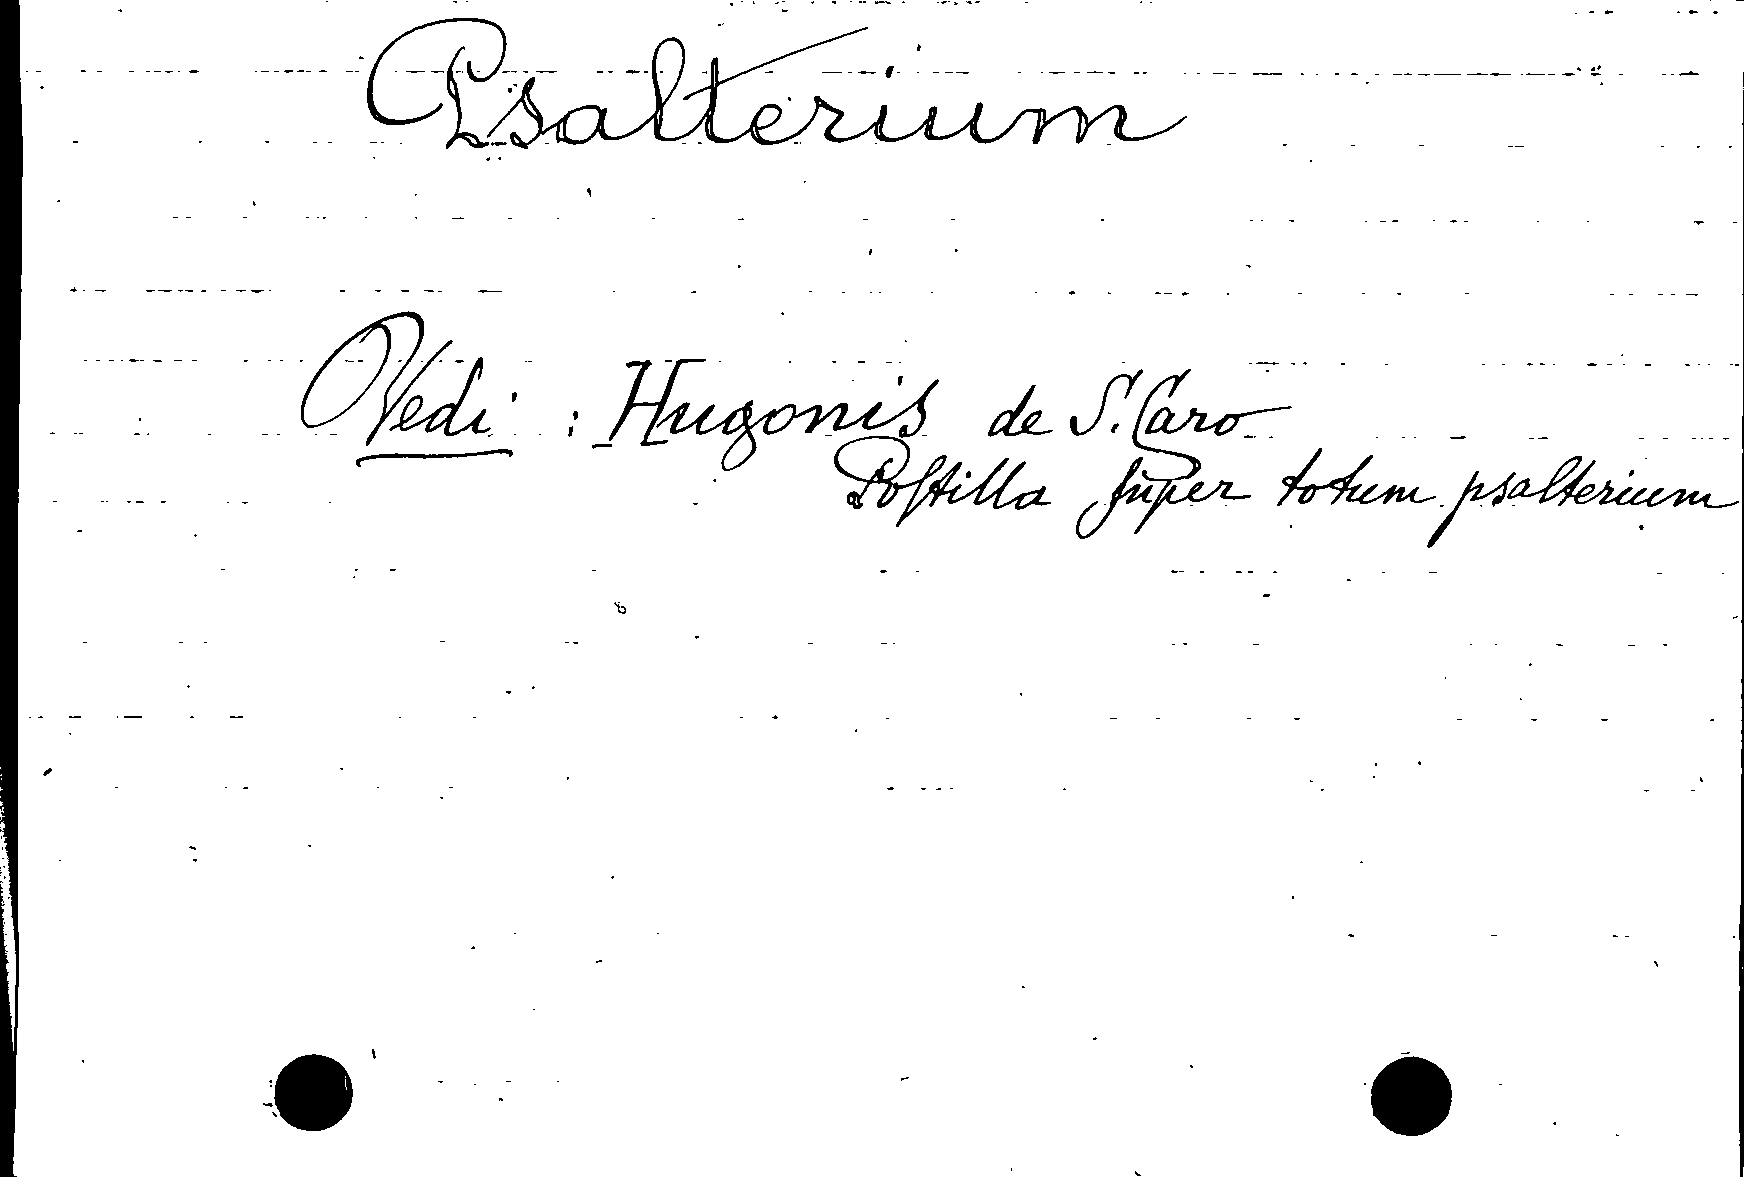 Psalterium
Vedi : Hugonis de S. Caro
Postilla super totum psalterium